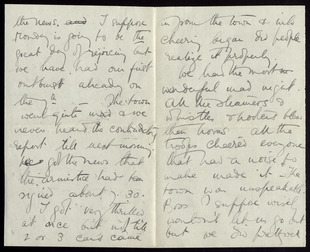 the news. and I suppose
Monday is going to be the
great day of rejoicing but
we have had our first
outburst already on
the 7th. The town
went quite mad & we
never heard the contradictory
report till next morning
we got the news that
the armistice had been
signed about 7.30.
I got very thrilled
at once but not till
2 or 3 cars came
in from the town & wild
cheering began did people
realize it properly.
We had the most
wonderful mad night.
All the steamers &
whistles & hooters blew
their horns all the
troops cheered everyone
that had a noise to
make made it. The
town was unspeakable
Ross I suppose wisely
wouldn't let us go out
but we did